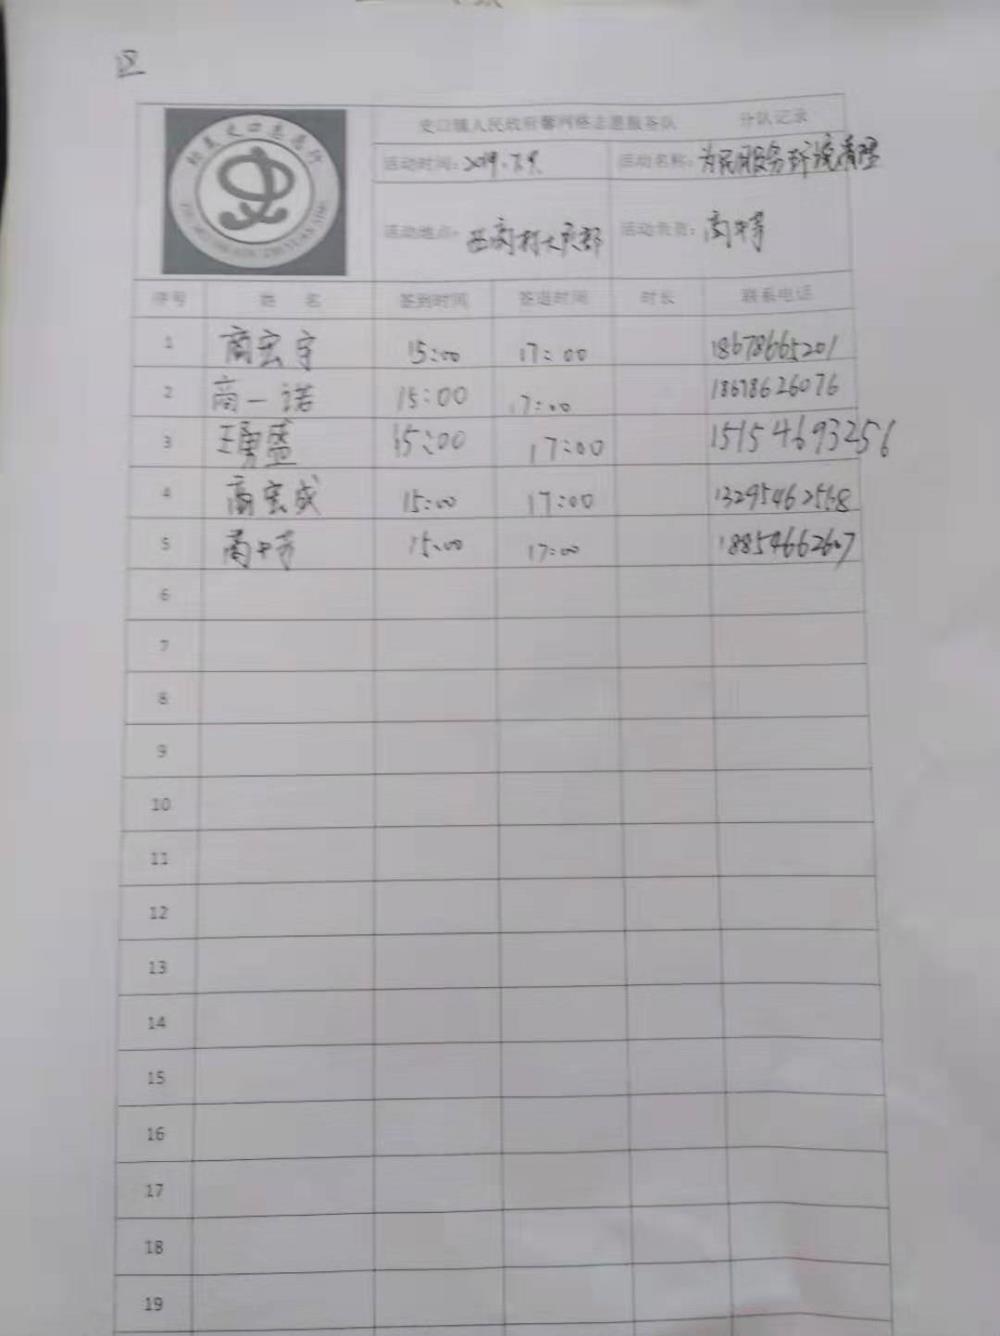 史口镇人民政府馨网格志愿服务队 分队记录
活动时间: 2019.7.9 活动名称: 为民服务环境清理
活动地点: 西商村大队部 活动负责:
序号 姓 名 签到时间 签退时间 时长 联系电话
1 商宏宇 15:00 17:00 18678665201
2 商一诺 15:00 17:00 18678626076
3 王勇盛 15:00 17:00 15154693256
4 商宏成 15:00 17:00 13295462568
5 15:00 17:00 18854662607
6
7
8
9
10
11
12
13
14
15
16
17
18
19